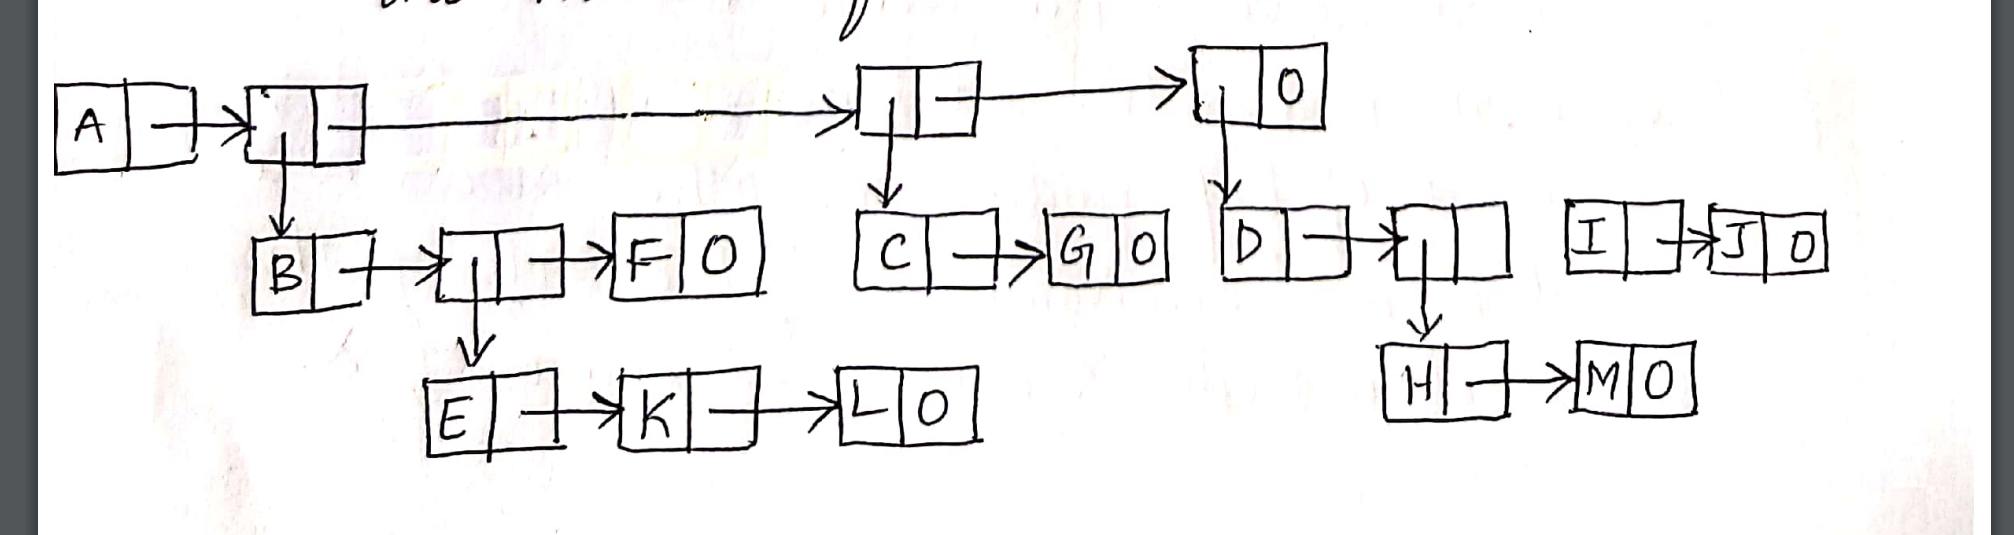 A
0
B F 0 C G 0 D I J 0
E K L 0 H M 0